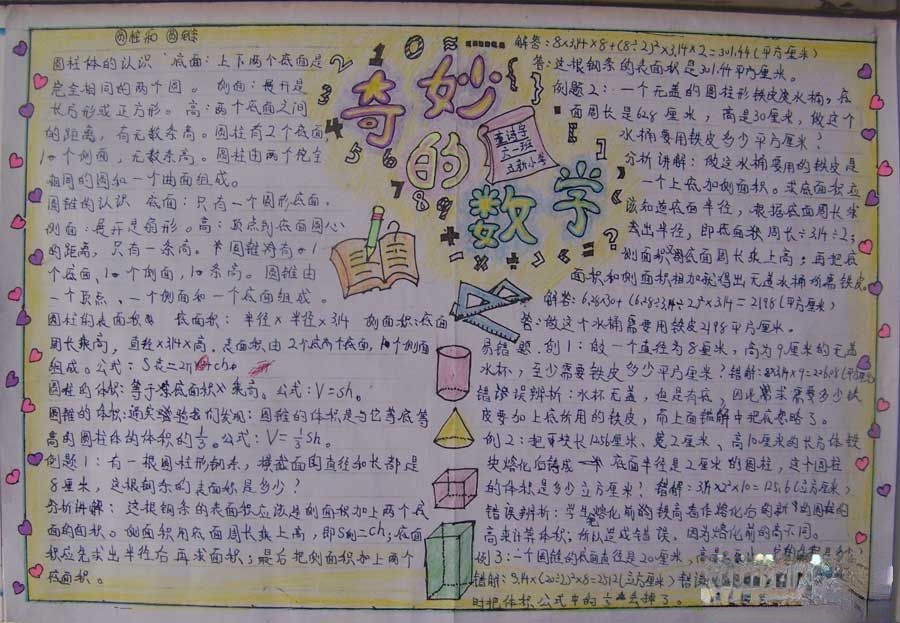 圆柱和圆锥
圆柱体的认识 底面：上下两个底面是
完全相同的两个圆。侧面：展开是
长方形或正方形。高：两个底面之间
的距离，有无数条高。圆柱有2个底面
1个侧面，无数条高。圆柱由两个完全
相同的圆和一个曲面组成。
圆锥的认识 底面：只有一个圆形底面，
侧面：展开是扇形。高：顶点到底面圆心
的距离，只有一条高。圆锥有1
个底面，1个侧面，1条高。圆锥由
一个顶点、一个侧面和一个底面组成。
圆柱的表面积 底面积：半径×半径×3.14 侧面积：底面
周长乘高，直径×3.14×高。表面积由2个底面，1个侧面
组成。公式：S表=
圆柱的体积：等于底面积×乘高。公式：V=sh。
圆锥的体积：通过实验我们发现：圆锥的体积是与它等底等
高的圆柱体的体积的1/3。公式：V=1/3sh。
例题1：有一根圆柱形钢条，横截面的直径和长都是
8厘米，这根钢条的表面积是多少？
分析讲解：这根钢条的表面积应该是侧面积加上两个底
面的面积。侧面积用底面周长乘上高，即S侧=Ch；底面
积应先求出半径后再求面积；最后把侧面积加上两个
底面积。
奇妙的数学
六一班
立新小学
解答：8×3.14×8+(8÷2)²×3.14×2=301.44(平方厘米)
答：这根钢条的表面积是301.44平方厘米。
例题2：一个无盖的圆柱形铁皮水桶，底
面周长是62.8厘米，高是30厘米，做这个
水桶要用铁皮多少平方厘米？
分析讲解：做这水桶要用的铁皮是
一个上底加侧面积。求底面积应
该知道底面半径，根据底面周长求
出半径，即底面周长÷3.14÷2；
侧面积用底面周长乘上高；再把底
面积和侧面积相加就得出无盖水桶所需铁皮。
解答：62.8×30+(62.8÷3.14÷2)²×3.14=2198(平方厘米)
答：做这个水桶需要用铁皮2198平方厘米。
易错题 例1：做一个直径为8厘米，高为9厘米的无盖
水杯，至少需要铁皮多少平方厘米？错解：8×3.14×9=226.08(平方厘米)
错误辨析：水杯无盖，但是有底，因此求需要多少铁
皮要加上底所用的铁皮，而上面错解中把底忽略了。
例2：把一块长12.56厘米、宽2厘米、高10厘米的长方体铁
块熔化后铸成底面半径是2厘米的圆柱，这个圆柱
的体积是多少立方厘米？错解：3.14×2²×10=125.6(立方厘米)
错误辨析：学生把熔化前的铁高当作熔化后的新的圆柱的
高来计算体积；所以造成错误，因为熔化前的高不同。
例3：一个圆锥的底面直径是20厘米，
错解：3.14×(20÷2)²×8=2512(立方厘米)
时把体积公式中的1/3丢掉了。